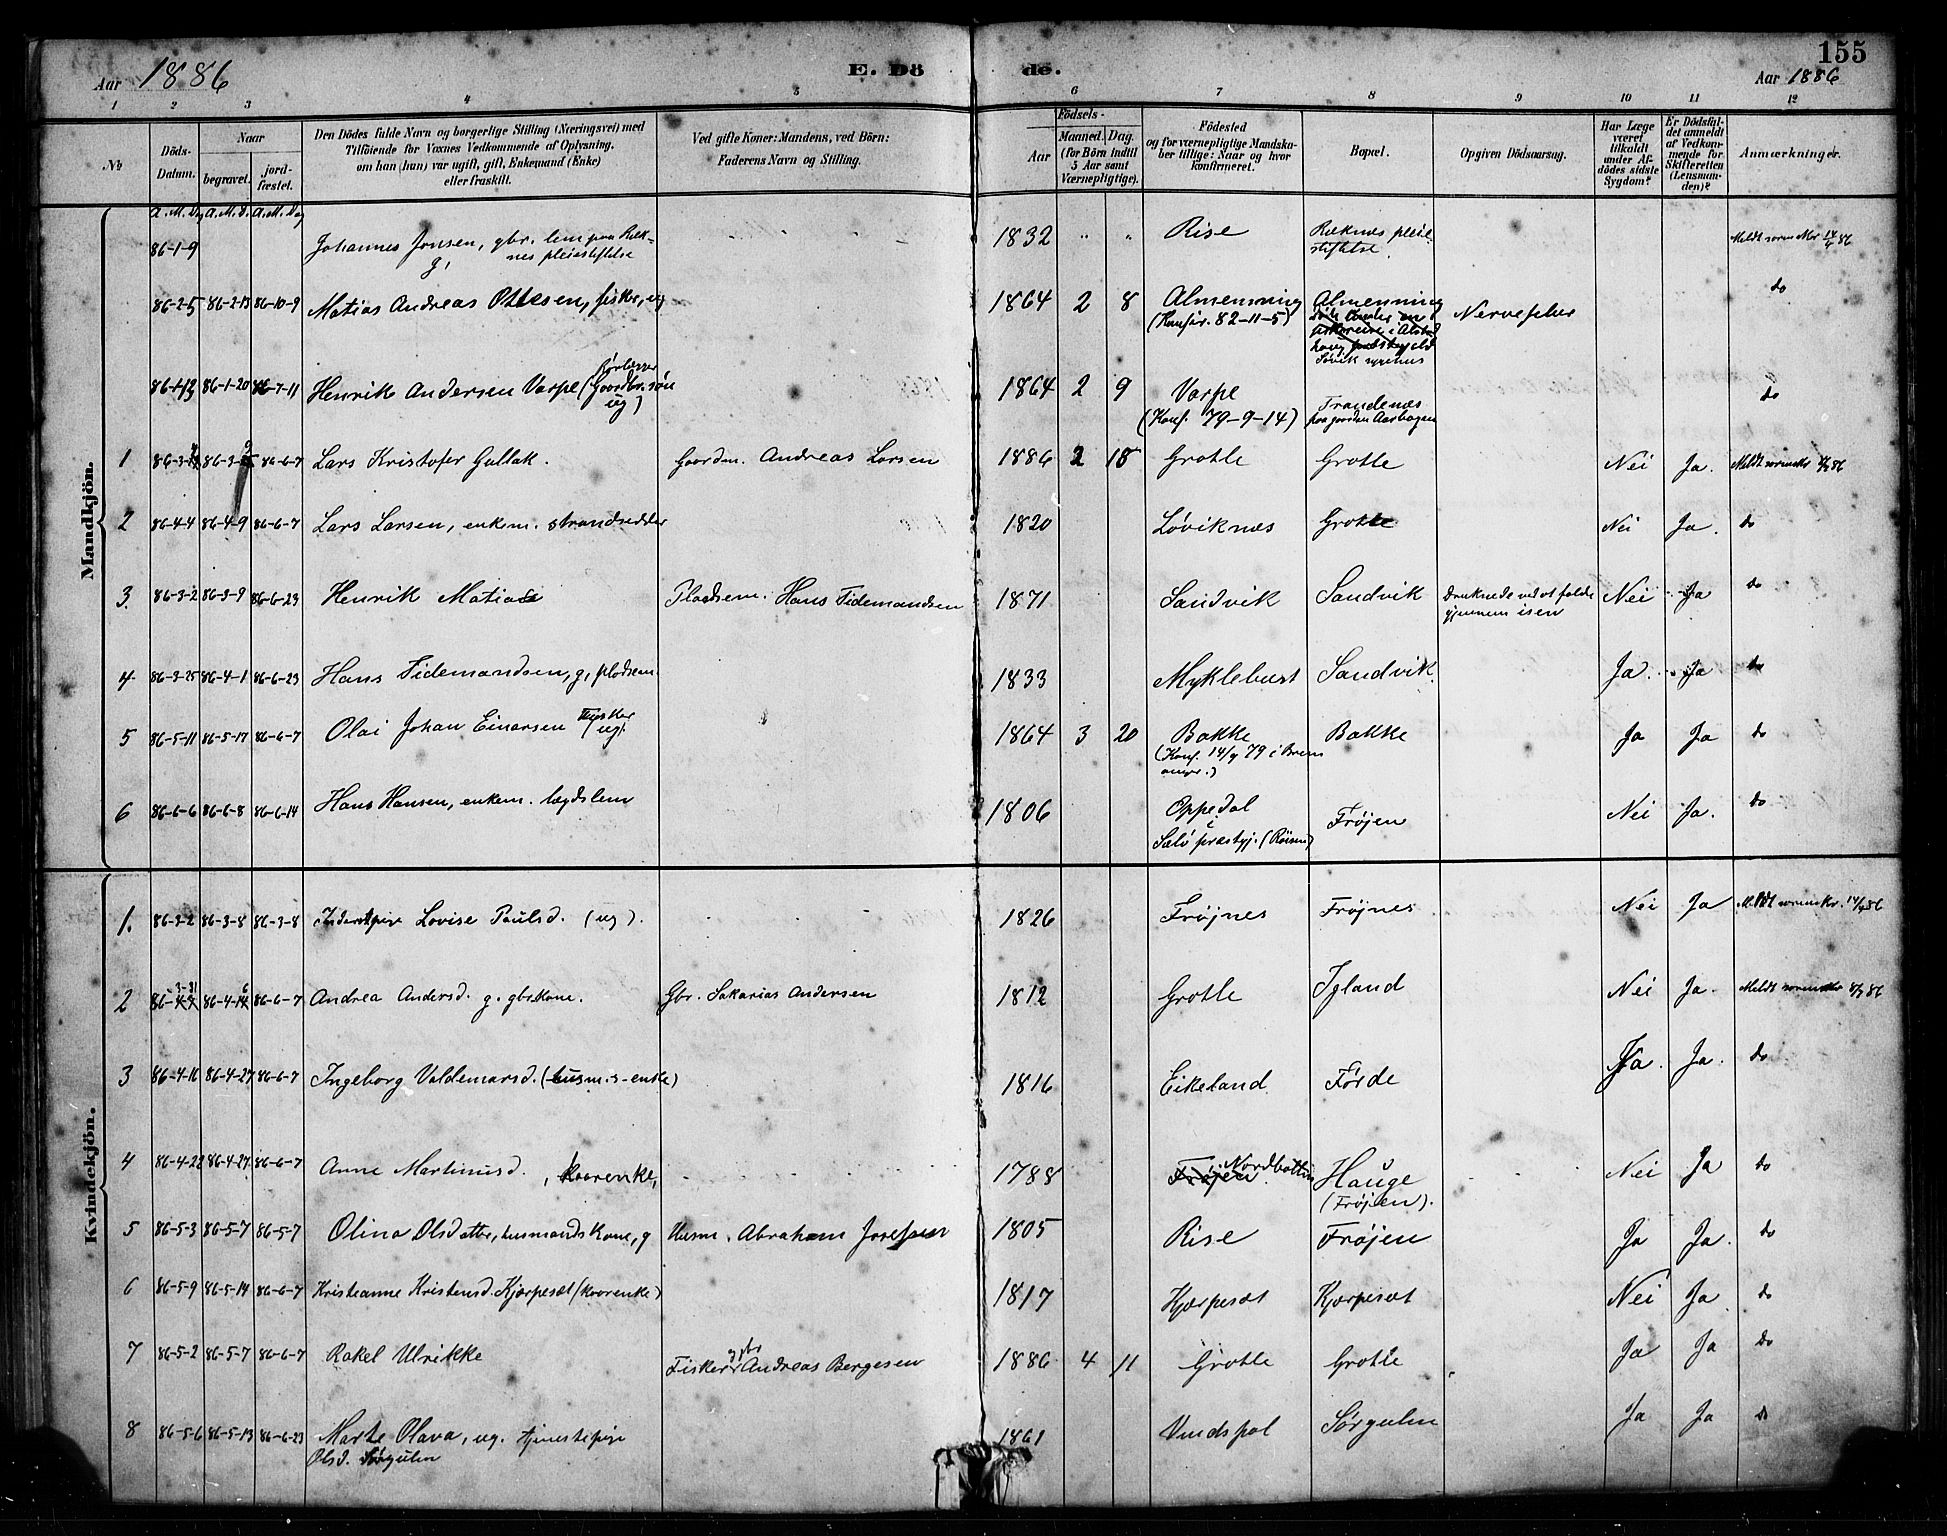 155
Aar 1886
E. Dö de.
Aar 1886
1 2 3 4 5 6 7 8 9 10 11 12
№
Döds-Datum.
Naar
begravet.
jord-fæstet.
Den Dödes fulde Navn og borgerlige Stilling (Næringsvei) med
Tilföiende for Voxnes Vedkommende af Oplysning,
om han (hun) var ugift, gift, Enkemand (Enke)
eller fraskilt.
Ved gifte Koner: Mandens, ved Börn:
Faderens Navn og Stilling.
Födsels-
Aar
Maaned. Dag.
(for Börn indtil
5 Aar samt
Værnepligtige).
Födested
og for værnepligtige Mandska-
ber tillige: Naar og hvor
konfirmeret.
Bopæl.
Opgiven Dödsaarsag.
Har Læge
været
tilkaldt
under Af-
dödes sidste
Sygdom?
Er Dödsfal-
det anmeldt
af Vedkom-
mende for
Skifteretten
(Lensman-
den)?
Anmærkninger.
Mandkjön.
a. M. Dag a. M. D. a. M. Dag
86-1-9 Johannes Jonsen, gbr. lem paa Rek- 1832 " " Rise Reknæs pleie-
g, nes pleiestiftelse stiftelse.
86-2-5 86-2-13 86-10-9 Matias Andreas Ottesen, fisker, ug 1864 2 8 Almenning Almenning Nervefeber do
(Konfir. 82-11-5)
Søvik sygehus
86-1-13 86-1-20 86-7-11 Henrik Andersen Varpe (Gaardbr. søn 1864 2 9 Varpe Trondenæs do
ug) (Konf. 79-9-14) paa gaarden Aarbogen
1 86-6-7 Lars Kristofer Gullak. Gaardm. Andreas Larsen 1886 2 18 Grotle Grotle Nei Ja.
2 86-4-4 86-4-9 86-6-7 Lars Larsen, enkem. strandsidder 1820 Løviknæs Grotle Nei Ja. do
3. 86-3-2 86-3-9 86-6-23 Henrik Matias Pladsem. Hans Tidemandsen 1871 Sandvik Sandvik Druknede ved at falde Nei Ja do
gjennem isen
4 86-3-25 86-4-1 86-6-23 Hans Tidemandsen, g, pladsem. 1833 Myklebust Sandvik. Ja. Ja do
5 86-5-11 86-5-17 86-6-7 Olai Johan Einarsen Fisker (ug). 1864 3 20 Bakke Bakke Ja Ja do
(Konf. 14/9 79 i Brem
anger.)
6 86-6-6 86-6-8 86-6-14 Hans Hansen, enkem. lægdslem 1806 Oppedal Frøjen Nei Ja. do
i
Kvindekjön.
1. 86-3-2 86-3-8 86-3-8 Lovise Paulsd. (ug). 1826 Frøjnes Frøjnes Nei Ja
2 86-6-7 Andrea Andersd. g. gbr.kone. Gbr. Sakarias Andersen 1812 Grotle Igland Nei Ja.
3 86-4-16 86-4-27 86-6-7 Ingeborg Valdemarsd. (husm.s-enke) 1816 Eikeland Førde Ja. Ja. do
4 86-4-22 86-4-27 86-6-7 Anne Martinusd. , kaarenke, 1788 Frøjen Nordbotten Hauge Nei Ja do
(Frøjen).
5 86-5-3 86-5-7 86-5-7 Olina Olsdatter, husmandskone, g Husm. Abraham Josefsen 1805 Rise Frøjen Ja Ja. do
6 86-5-9 86-5-14 86-6-7 Kristianne Kristensd. Kjærpesæt (kaarenke) 1817 Kjærpesæt Kjærpesæt Nei Ja. do
7 86-5-2 86-5-7 86-6-7 Rakel Ulrikke Fisker Andreas Børgesen 1886 4 11 Grotle Grotle Ja Ja do
8 86-5-6 86-5-13 86-6-23 Marte Olava, ug. tjenestepige 1861 Vindspol Sørgulen Ja Ja do
Olsd. Sørgulen